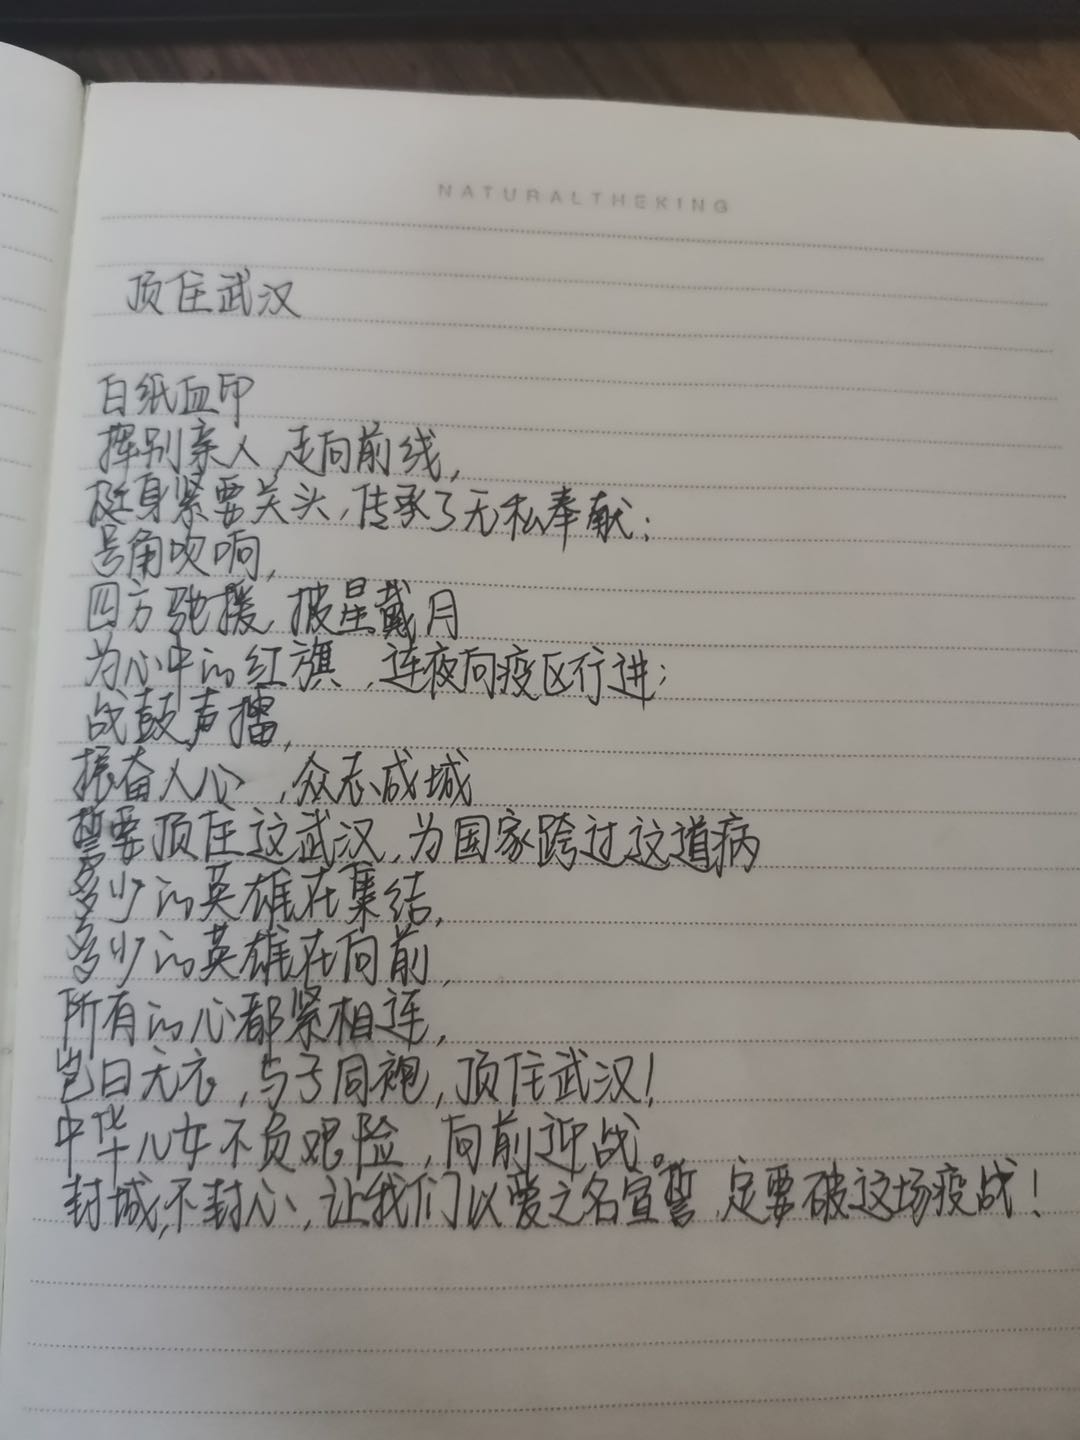 NATURALTHEKING
顶住武汉
白纸血印
挥别亲人,走向前线,
挺身紧要关头,传承了无私奉献;
号角吹响,
四方驰援,披星戴月
为心中的红旗,连夜向疫区行进;
战鼓声擂,
振奋人心,众志成城
誓要顶住这武汉,为国家跨过这道病
多少的英雄在集结,
多少的英雄在向前,
所有的心都紧相连,
岂曰无衣,与子同袍,顶住武汉!
中华儿女不负艰险,向前迎战。
封城,不封心,让我们以爱之名宣誓,定要破这场疫战!